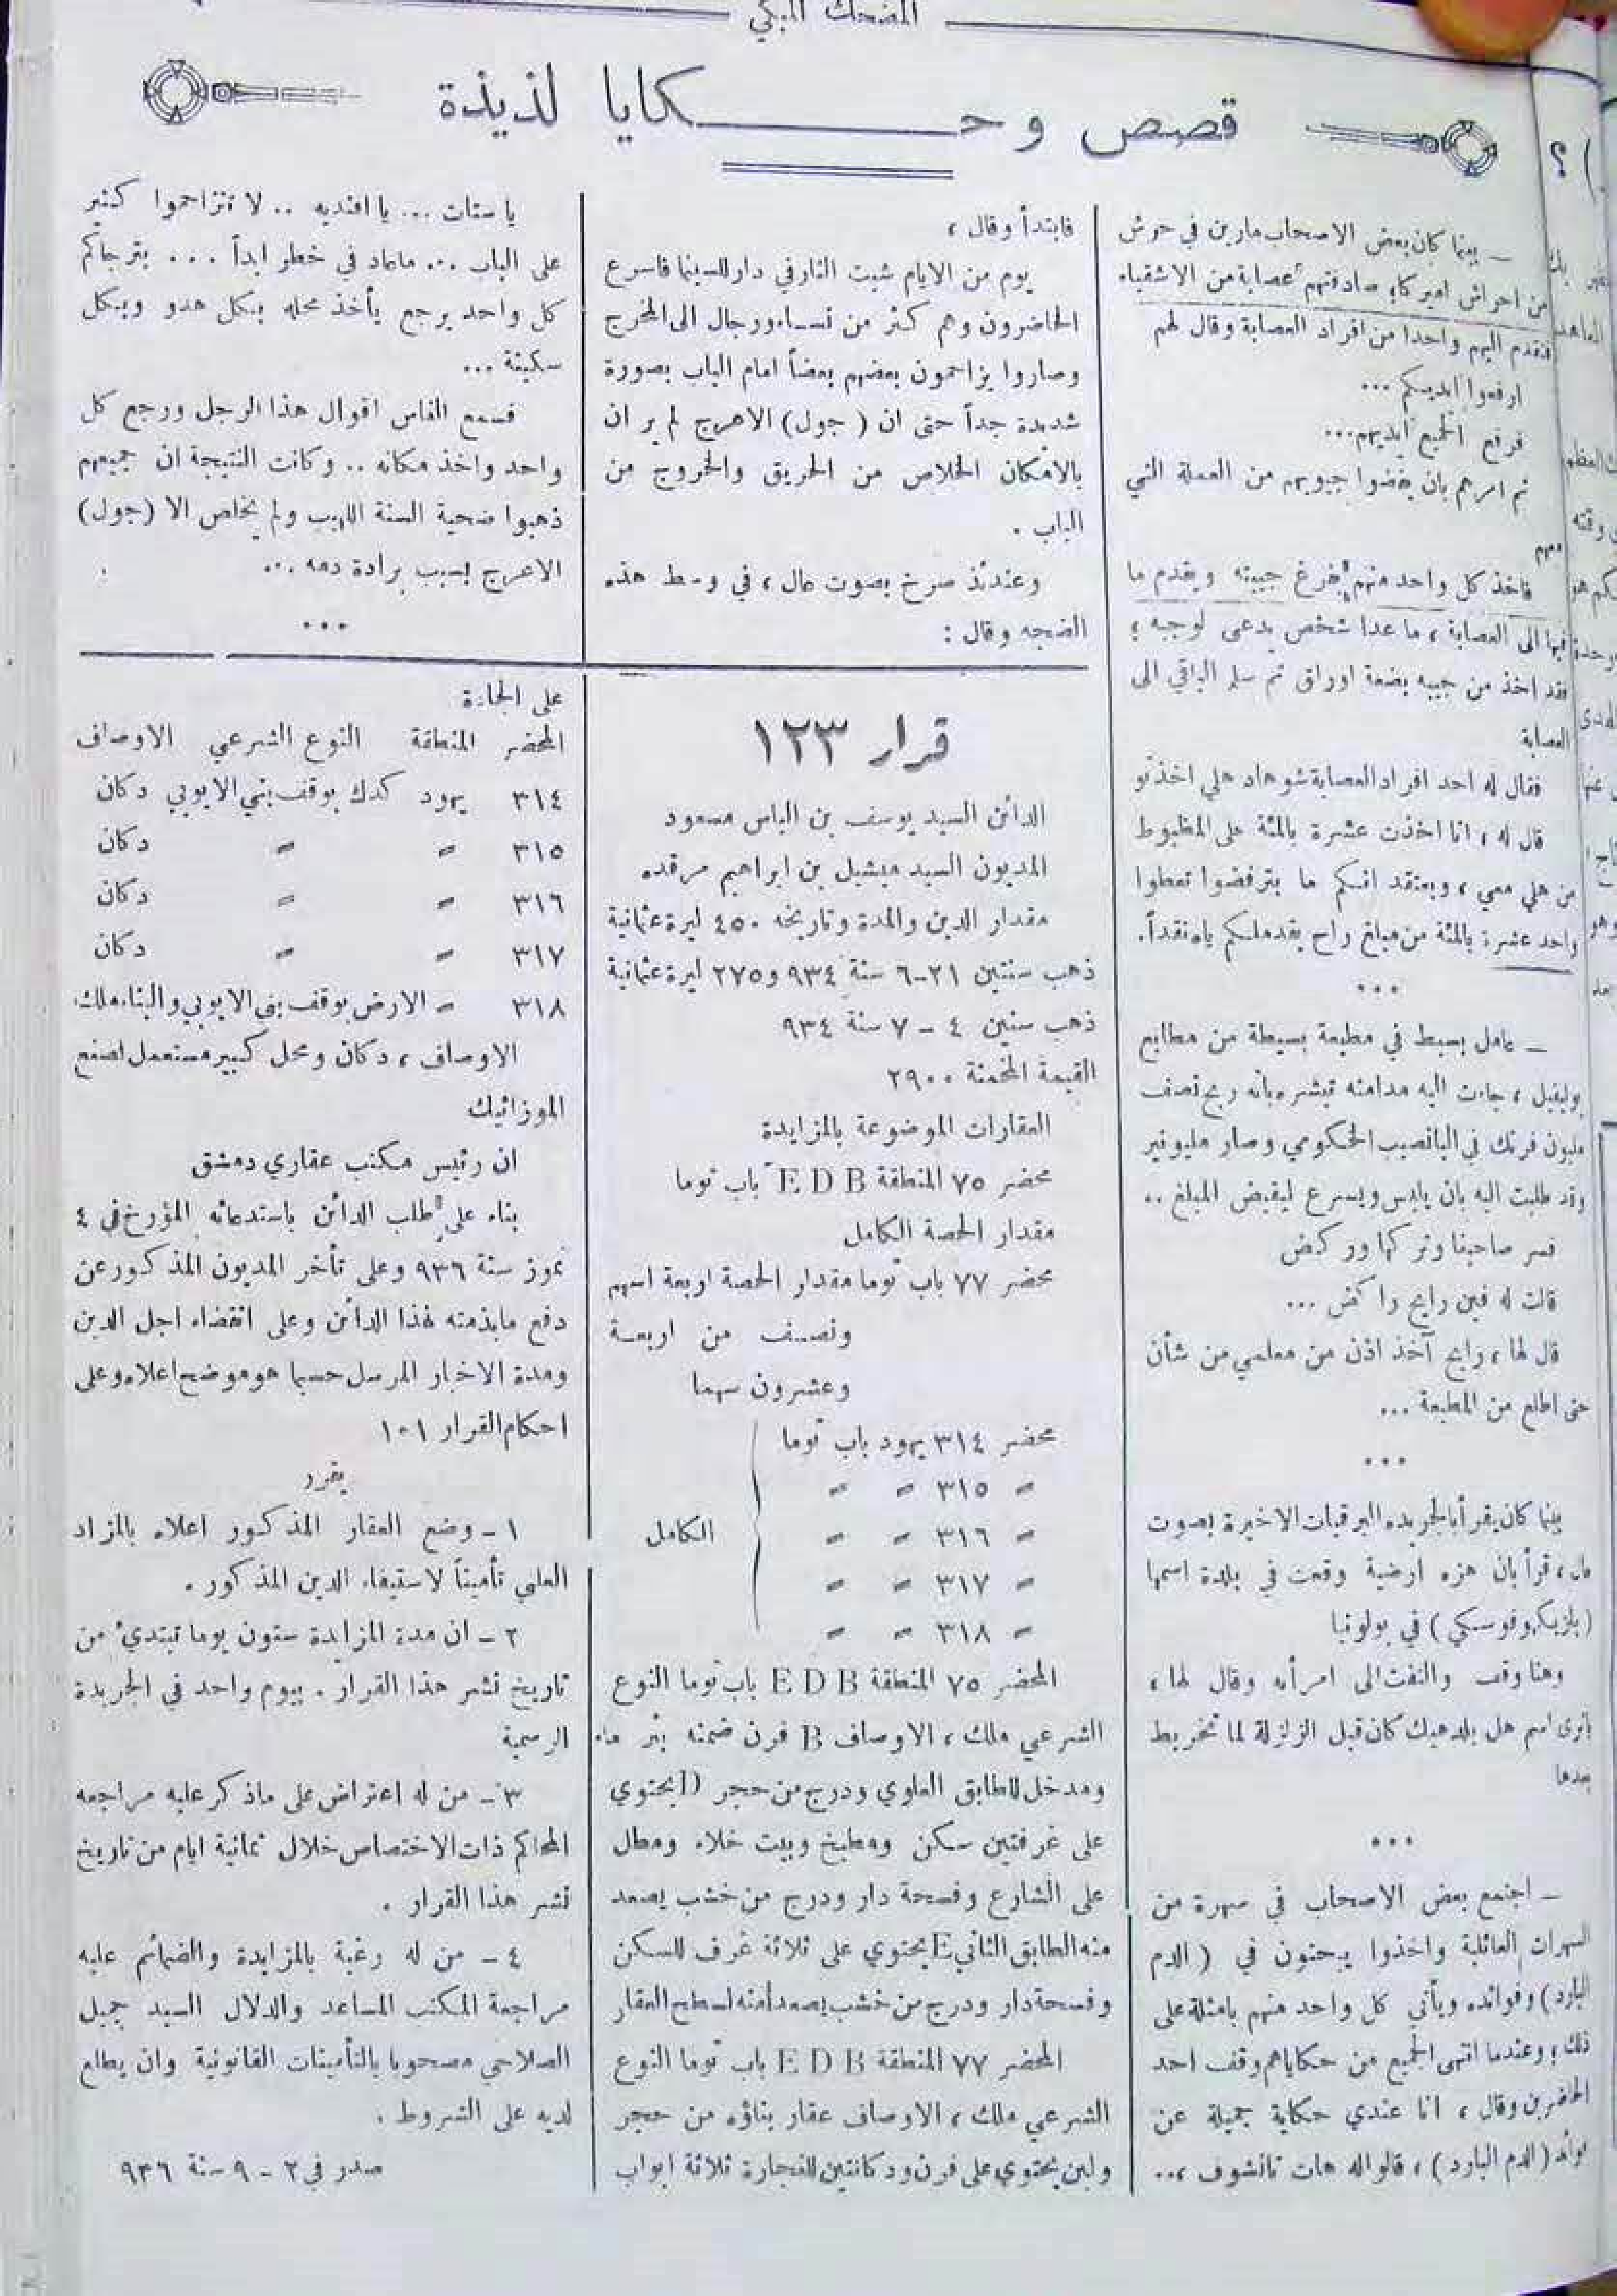 المضحك المبكي
قصص وحكايا لذيذة
ـ بينما كان بعض الاصحاب مارين في حرش
من احراش اميركا، صادفتهم عصابة من الاشقياء
فتقدم اليهم واحدا من افراد العصابة وقال لهم
ارفعوا ايديكم ...
فرفع الجميع ايديهم...
ثم امرهم بان يفضوا جيوبهم من العملة التي
معهم
فاخذ كل واحد منهم يفرغ جيبته ويقدم ما
فيها الى العصابة ، ما عدا شخص يدعى لوجيه ؛
فقد اخذ من جيبه بضعة اوراق ثم سلم الباقي الى
العصابة
فقال له احد افراد العصابة شو هاد هلي اخذتو
قال له ، انا اخذت عشرة بالمئة على المظبوط
من هلي معي ، وبعتقد انكم ما بترفضوا تعطوا
واحد عشرة بالمئة من مبلغ راح يقدملكم ياه نقداً.
...
ـ عامل بسيط في مطبعة بسيطة من مطابع
بوليفيل ، جاءت اليه مدامته تبشره بانه ربح نصف
مليون فرنك في اليانصيب الحكومي وصار مليونير
وقد طلبت اليه بان يلبس ويسرع ليقبض المبلغ ..
فسر صاحبنا وتركها وركض
قالت له فين رايح راكض ...
قال لها ، رايح آخذ اذن من معلمي من شان
حتى اطلع من المطبعة ...
...
بينما كان يقرأ بالجريده البرقيات الاخيرة بصوت
عال ، قرأ بان هزه ارضية وقعت في بلدة اسمها
( بلزيكروفوسكي ) في بولونيا
وهنا وقف والتفت الى امرأته وقال لها ،
ياترى اسم هل بلد هيك كان قبل الزلزلة لما تخربط
بعدها
...
ـ اجتمع بعض الاصحاب في سهرة من
السهرات العائلية واخذوا يبحثون في ( الدم
البارد ) وفوائده ويأتي كل واحد منهم بامثلة على
ذلك ؛ وعندما انتهى الجميع من حكاياهم وقف احد
الحاضرين وقال ، انا عندي حكاية جميلة عن
فوائد ( الدم البارد ) ، قالوا له هات تانشوف ،..
فابتدأ وقال ،
يوم من الايام شبت النار في دار للسينما فاسرع
الحاضرون وهم كثر من نساء ورجال الى المخرج
وصاروا يزاحمون بعضهم بعضاً امام الباب بصورة
شديدة جداً حتى ان ( جول ) الاعرج لم ير ان
بالامكان الخلاص من الحريق والخروج من
الباب .
وعندئذ صرخ بصوت عال ، في وسط هذه
الضجه وقال :
يا ستات ... يا افنديه .. لا تتزاحموا كثير
على الباب ... ماعاد في خطر ابداً ... بترجاكم
كل واحد يرجع يأخذ محله بكل هدو وبكل
سكينة ...
فسمع الناس اقوال هذا الرجل ورجع كل
واحد واخذ مكانه .. وكانت النتيجة ان جميعهم
ذهبوا ضحية السنة اللهيب ولم يخلص الا (جول)
الاعرج بسبب برادة دمه ...
...
قرار ١٢٣
الدائن السيد يوسف بن الياس مسعود
المديون السيد ميشيل بن ابراهيم مرقده
مقدار الدين والمدة وتاريخه ٤٥٠ ليرة عثمانية
ذهب سنتين ٢١-٦ سنة ٩٣٤ و ٢٧٥ ليرة عثمانية
ذهب سنين ٤ - ٧ سنة ٩٣٤
القيمة المخمنة ٢٩٠٠
العقارات الموضوعة بالمزايدة
محضر ٧٥ المنطقة E D B باب توما
مقدار الحصة الكامل
محضر ٧٧ باب توما مقدار الحصة اربعة اسهم
ونصف من اربعة
وعشرون سهما
محضر ٣١٤ يهود باب توما
〃 ٣١٥ 〃 〃
〃 ٣١٦ 〃 〃 الكامل
〃 ٣١٧ 〃 〃
〃 ٣١٨ 〃 〃
المحضر ٧٥ المنطقة E D B باب توما النوع
الشرعي ملك ، الاوصاف B فرن ضمنه بئر ماء
ومدخل للطابق العلوي ودرج من حجر (ا يحتوي
على غرفتين سكن ومطبخ وبيت خلاء ومطل
على الشارع وفسحة دار ودرج من خشب يصعد
منه الطابق الثاني E يحتوي على ثلاثة غرف للسكن
وفسحة دار ودرج من خشب يصعد منه لسطح العقار
المحضر ٧٧ المنطقة E D B باب توما النوع
الشرعي ملك ، الاوصاف عقار بناؤه من حجر
ولبن يحتوي على فرن ودكانتين للنجارة ثلاثة ابواب
على الجادة
المحضر المنطقة النوع الشرعي الاوصاف
٣١٤ يهود كدك بوقف بني الايوبي دكان
٣١٥ 〃 〃 دكان
٣١٦ 〃 〃 دكان
٣١٧ 〃 〃 دكان
٣١٨ 〃 الارض بوقف بني الايوبي والبناء ملك
الاوصاف ، دكان ومحل كبير مستعمل لصنع
الموزائيك
ان رئيس مكتب عقاري دمشق
بناء على طلب الدائن باستدعائه المؤرخ في ٤
تموز سنة ٩٣٦ وعلى تأخر المديون المذكور عن
دفع مابذمته لهذا الدائن وعلى انقضاء اجل الدين
ومدة الاخبار المرسل حسبما هو موضح اعلاه وعلى
احكام القرار ١٠١
يقرر
١ - وضع العقار المذكور اعلاه بالمزاد
العلني تأميناً لاستيفاء الدين المذكور .
٢ - ان مدة المزايدة ستون يوما تبتدئ من
تاريخ نشر هذا القرار . بيوم واحد في الجريدة
الرسمية
٣ - من له اعتراض على ماذكر عليه مراجعه
المحاكم ذات الاختصاص خلال ثمانية ايام من تاريخ
نشر هذا القرار .
٤ - من له رغبة بالمزايدة والضمائم عليه
مراجعة المكتب المساعد والدلال السيد جميل
الصلاحي مصحوبا بالتأمينات القانونية وان يطلع
لديه على الشروط .
صدر في ٢ - ٩ سنة ٩٣٦